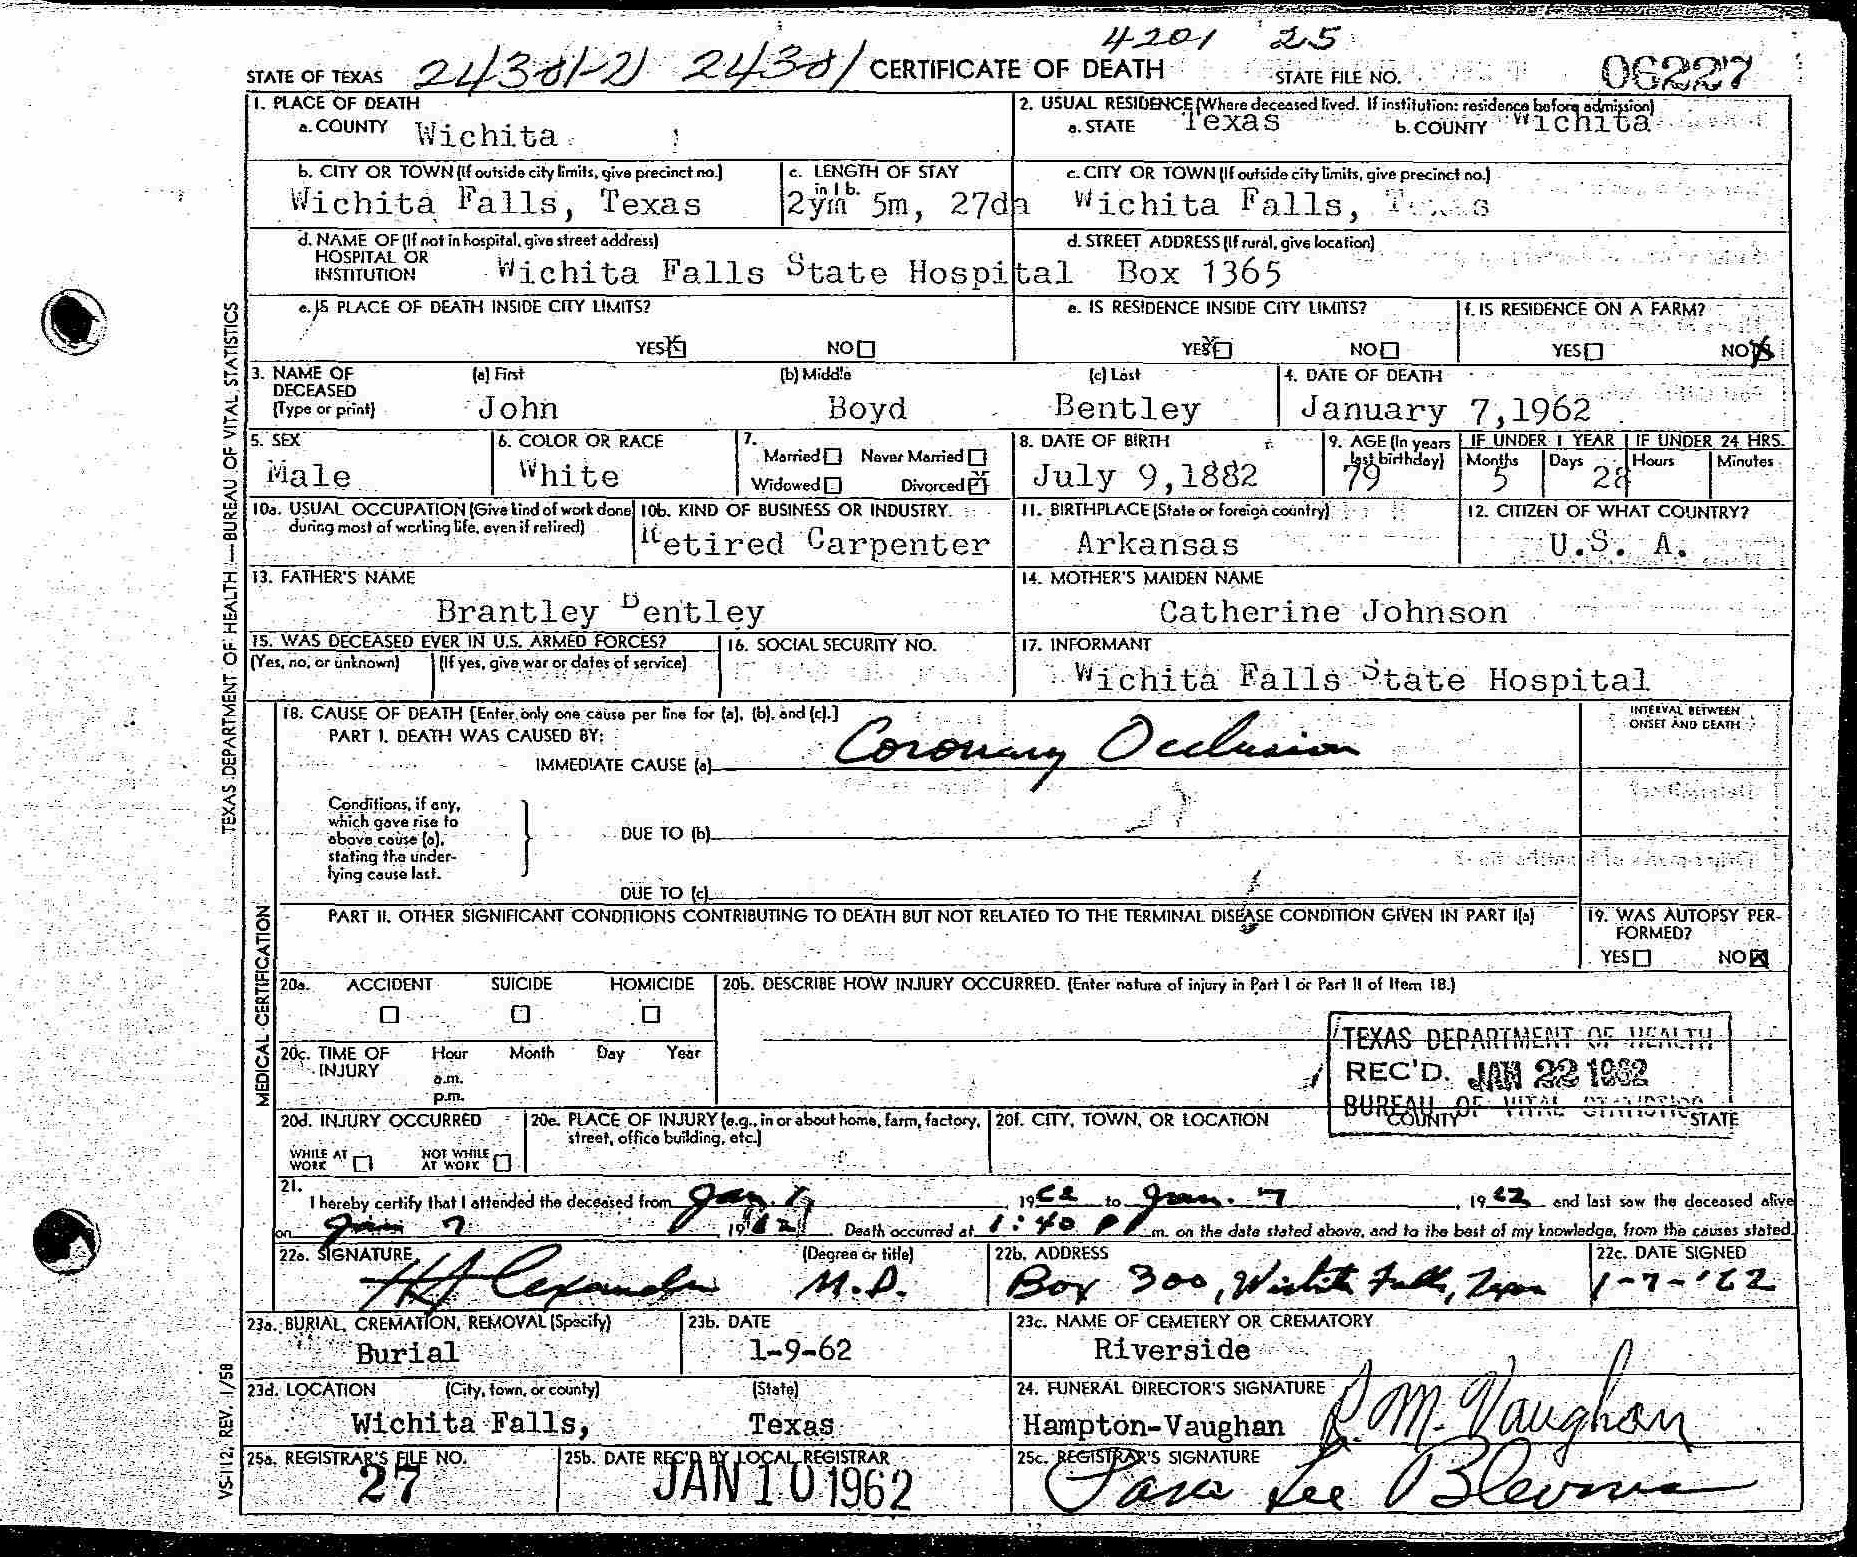 4201 25
STATE OF TEXAS 24381-21 24381 CERTIFICATE OF DEATH STATE FILE NO. 06227
1. PLACE OF DEATH
a. COUNTY Wichita
2. USUAL RESIDENCE (Where deceased lived. If institution: residence before admission)
a. STATE Texas b. COUNTY Wichita
b. CITY OR TOWN (If outside city limits, give precinct no.)
Wichita Falls, Texas
c. LENGTH OF STAY
in 1 b.
2ym 5m, 27da
c. CITY OR TOWN (If outside city limits, give precinct no.)
Wichita Falls, Texas
d. NAME OF (If not in hospital, give street address)
HOSPITAL OR
INSTITUTION Wichita Falls State Hospital
d. STREET ADDRESS (If rural, give location)
Box 1365
e. IS PLACE OF DEATH INSIDE CITY LIMITS?
YES NO
e. IS RESIDENCE INSIDE CITY LIMITS?
YES NO
f. IS RESIDENCE ON A FARM?
YES NO
3. NAME OF
DECEASED
(Type or print)
(a) First (b) Middle (c) Last
John Boyd Bentley
4. DATE OF DEATH
January 7,1962
5. SEX
Male
6. COLOR OR RACE
White
7.
Married Never Married
Widowed Divorced
8. DATE OF BIRTH
July 9,1882
9. AGE (In years
last birthday)
79
IF UNDER 1 YEAR
Months Days
5 28
IF UNDER 24 HRS.
Hours Minutes
10a. USUAL OCCUPATION (Give kind of work done
during most of working life, even if retired)
10b. KIND OF BUSINESS OR INDUSTRY.
Retired Carpenter
11. BIRTHPLACE (State or foreign country)
Arkansas
12. CITIZEN OF WHAT COUNTRY?
U.S. A.
13. FATHER'S NAME
Brantley Bentley
14. MOTHER'S MAIDEN NAME
Catherine Johnson
15. WAS DECEASED EVER IN U.S. ARMED FORCES?
(Yes, no, or unknown) (If yes, give war or dates of service)
16. SOCIAL SECURITY NO.
17. INFORMANT
Wichita Falls State Hospital
18. CAUSE OF DEATH [Enter only one cause per line for (a), (b), and (c).]
PART I. DEATH WAS CAUSED BY:
IMMEDIATE CAUSE (a) Coronary Occlusion
INTERVAL BETWEEN
ONSET AND DEATH
Conditions, if any,
which gave rise to
above cause (a),
stating the under-
lying cause last.
DUE TO (b)
DUE TO (c)
PART II. OTHER SIGNIFICANT CONDITIONS CONTRIBUTING TO DEATH BUT NOT RELATED TO THE TERMINAL DISEASE CONDITION GIVEN IN PART I(a)
19. WAS AUTOPSY PER-
FORMED?
YES NO
20a. ACCIDENT SUICIDE HOMICIDE
20b. DESCRIBE HOW INJURY OCCURRED. (Enter nature of injury in Part I or Part II of Item 18.)
20c. TIME OF
INJURY
Hour Month Day Year
a.m.
p.m.
TEXAS DEPARTMENT OF HEALTH
REC'D. JAN 22 1962
BUREAU OF VITAL STATISTICS
20d. INJURY OCCURRED
WHILE AT
WORK
NOT WHILE
AT WORK
20e. PLACE OF INJURY (e.g., in or about home, farm, factory,
street, office building, etc.)
20f. CITY, TOWN, OR LOCATION COUNTY STATE
21.
I hereby certify that I attended the deceased from Jan. 7, 1962 to Jan. 7, 1962 and last saw the deceased alive
on Jan 7, 1962. Death occurred at 1:40 P m. on the date stated above, and to the best of my knowledge, from the causes stated.
22a. SIGNATURE (Degree or title)
H Alexander M.D.
22b. ADDRESS
Box 300, Wichita Falls, Texas
22c. DATE SIGNED
1-7-'62
23a. BURIAL, CREMATION, REMOVAL (Specify)
Burial
23b. DATE
1-9-62
23c. NAME OF CEMETERY OR CREMATORY
Riverside
23d. LOCATION (City, town, or county) (State)
Wichita Falls, Texas
24. FUNERAL DIRECTOR'S SIGNATURE
Hampton-Vaughan R. M. Vaughan
25a. REGISTRAR'S FILE NO.
27
25b. DATE REC'D BY LOCAL REGISTRAR
JAN 10 1962
25c. REGISTRAR'S SIGNATURE
Sara Lee Blevins
TEXAS DEPARTMENT OF HEALTH — BUREAU OF VITAL STATISTICS
MEDICAL CERTIFICATION
VS-112, REV. 1/58